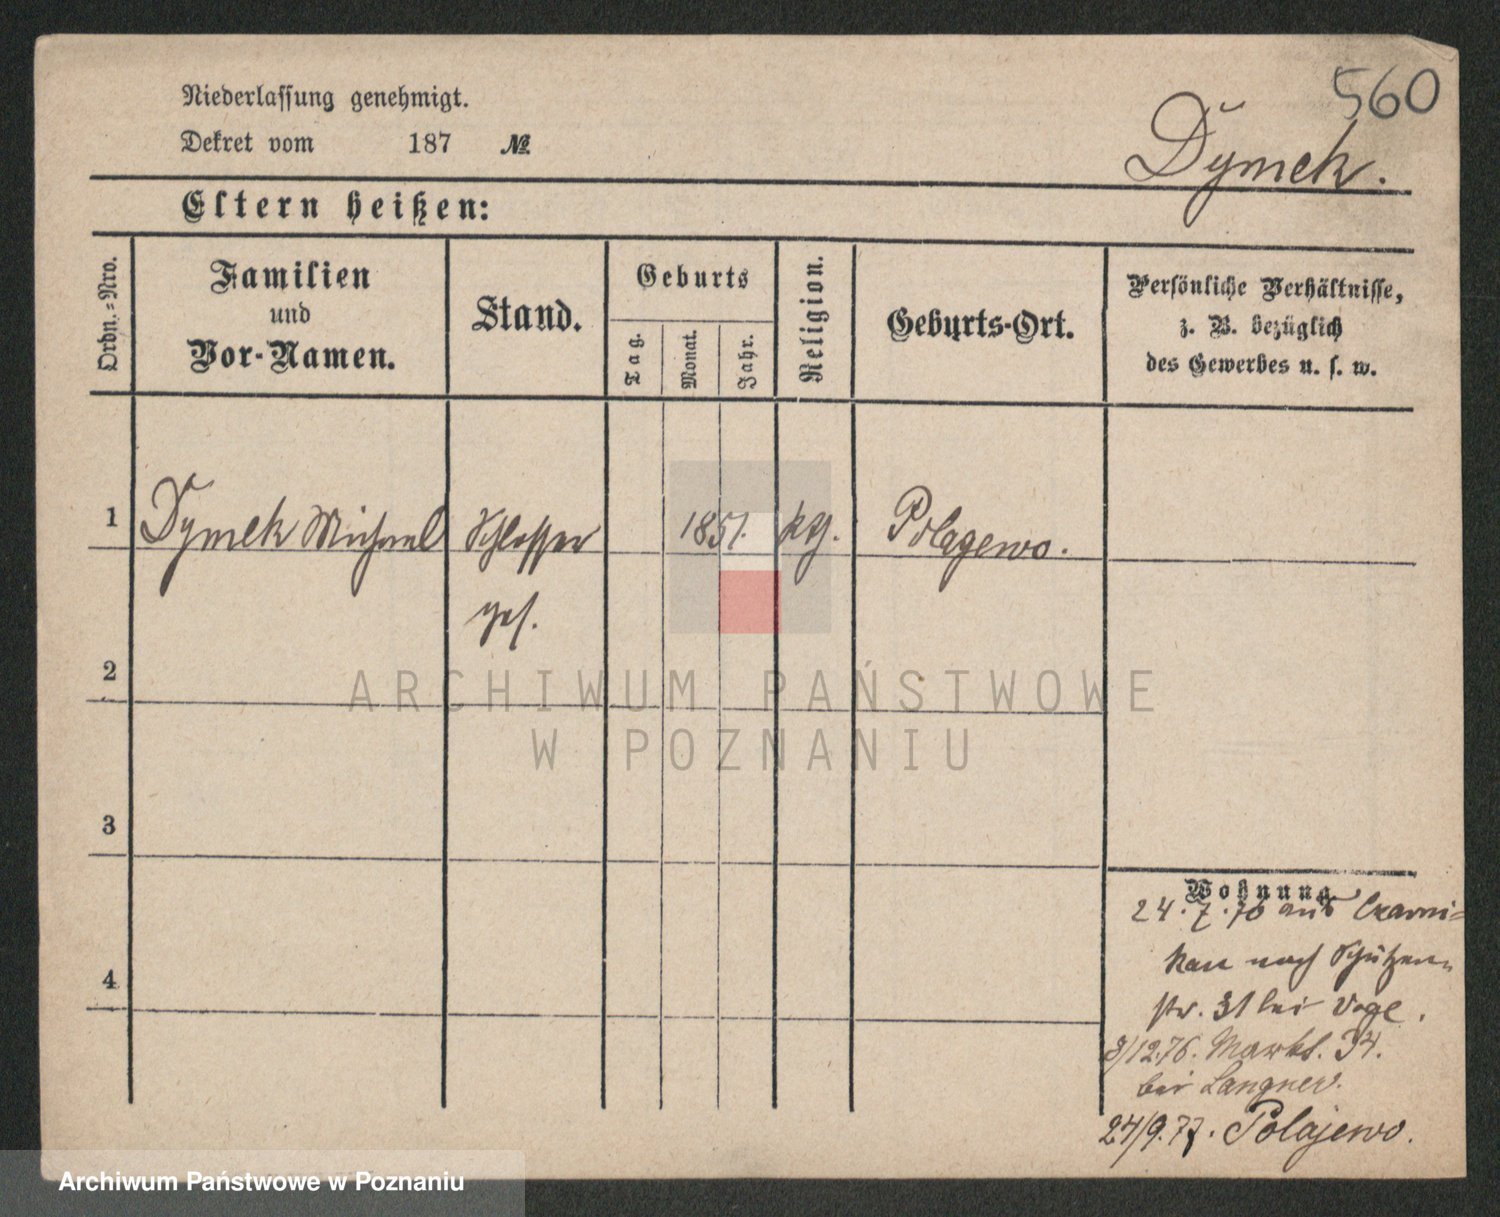 560
Niederlassung genehmigt.
Dekret vom 187 №
Dymek.
Eltern heißen:
Ordn.=Nro.
Familien
und
Vor-Namen.
Stand.
Geburts
Tag.
Monat.
Jahr.
Religion.
Geburts-Ort.
Persönliche Verhältnisse,
z. B. bezüglich
des Gewerbes u. s. w.
1 Dymek Michael Schlosser 1851. kth. Polagewo.
ges.
2
ARCHIWUM PAŃSTWOWE
W POZNANIU
3
Wohnung
24.7.76 aus Czarni=
kau nach Schützen
4
str. 31 bei Voge.
8/12.76. Markt. 34.
bei Langner.
24/9.77. Polajewo.
Archiwum Państwowe w Poznaniu